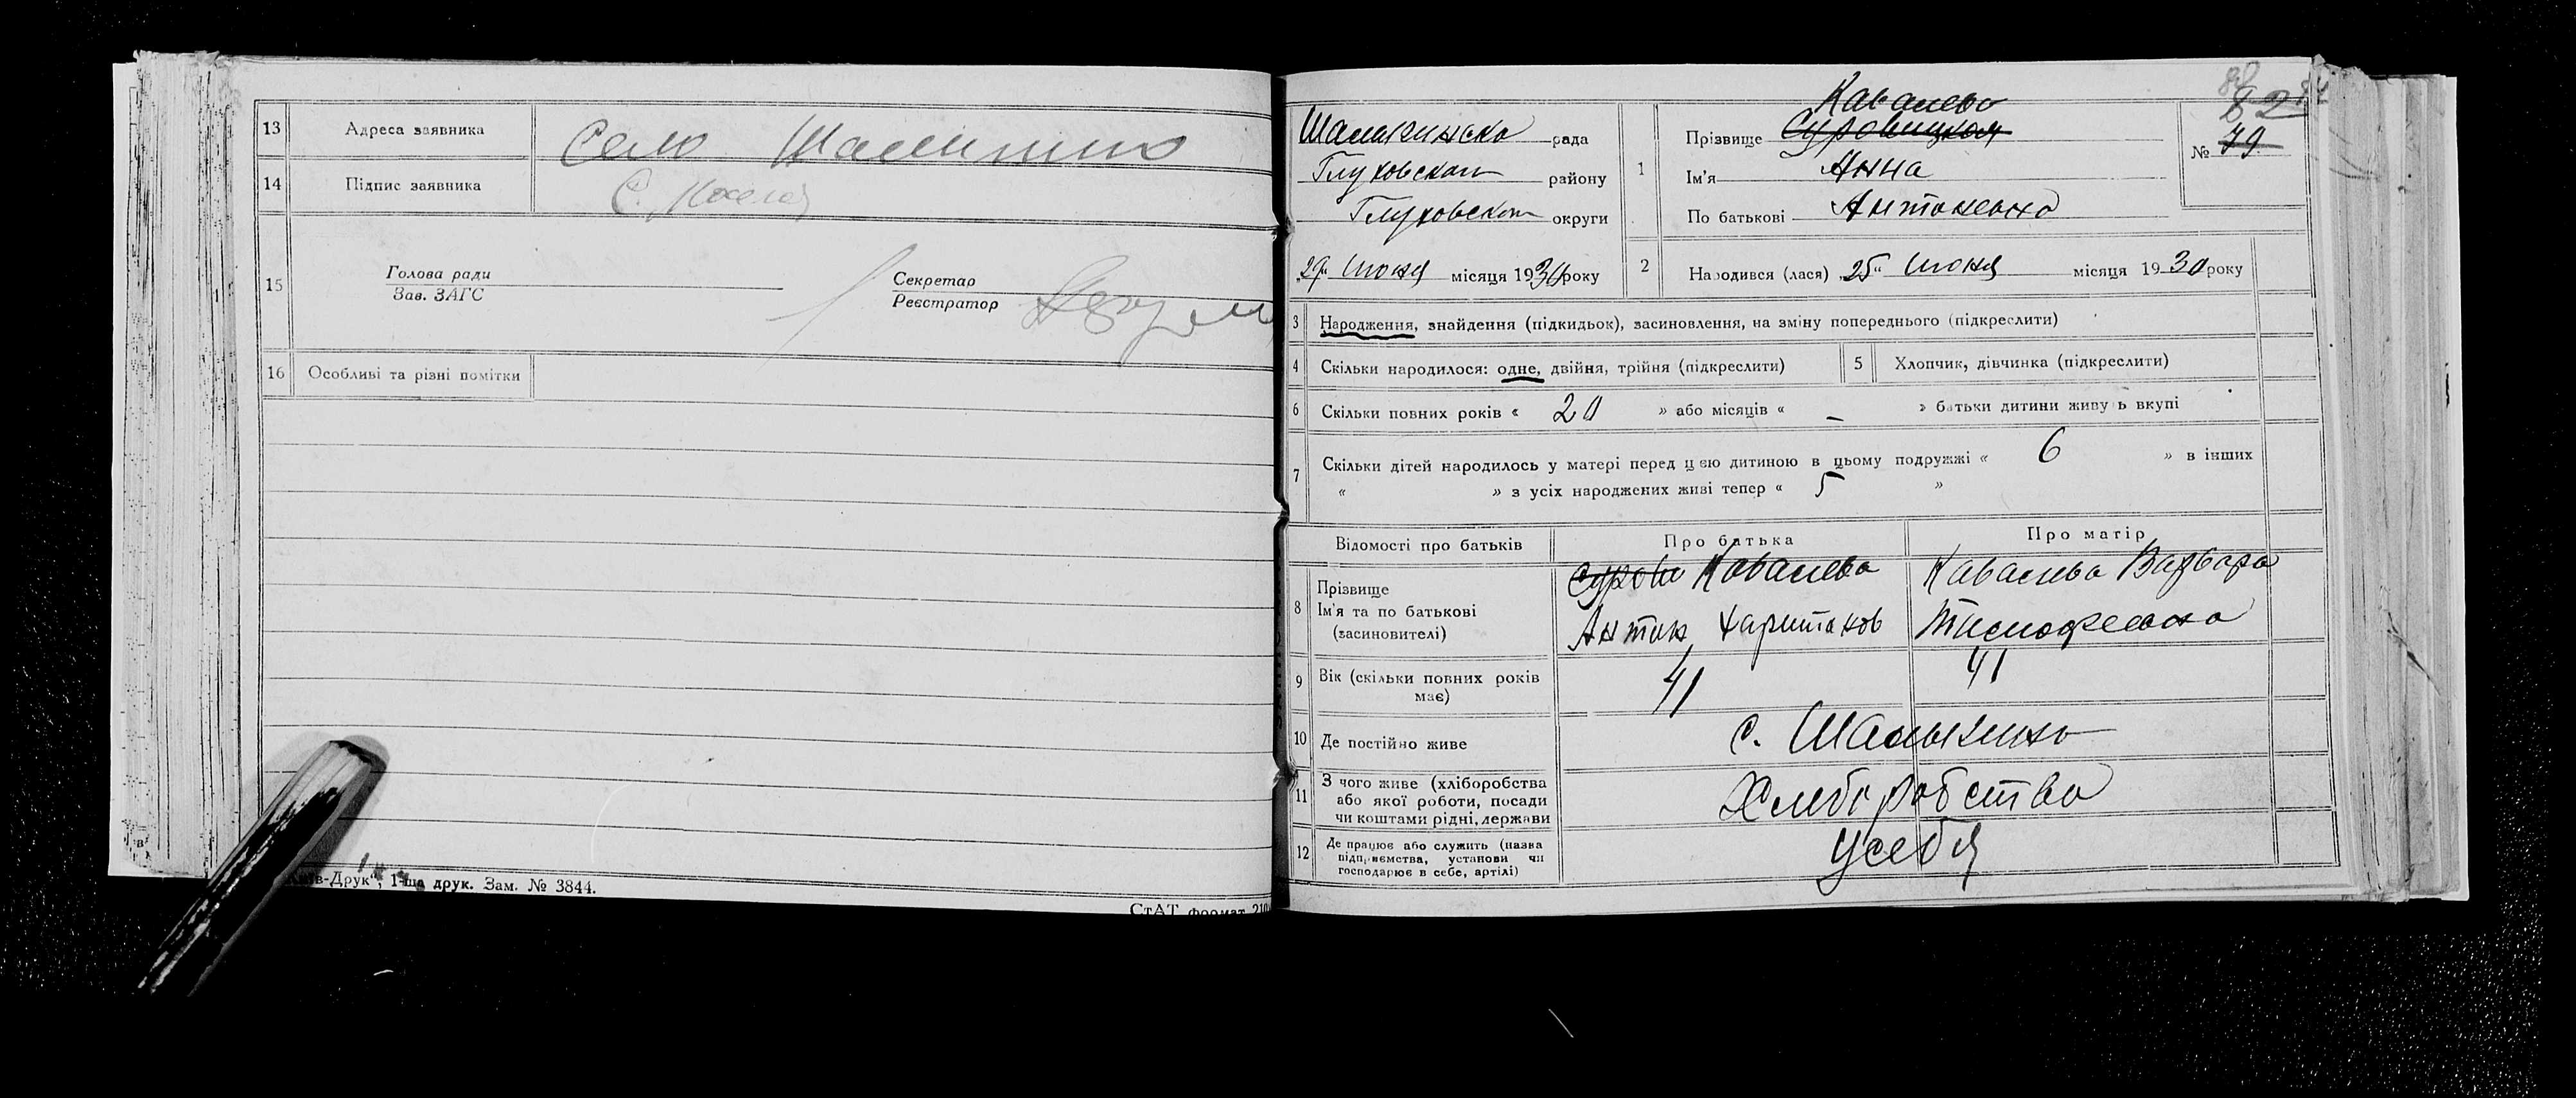 13 Адреса заявника Село Шалыгино
14 Підпис заявника
15 Голова ради
Зав. ЗАГС
Секретар
Реєстратор
16 Особливі та різні помітки
Київ-Друк", 1-ша друк. Зам. № 3844.
СтАТ формат 210
Шалыгинска рада
Глуховского району
Глуховского округи
„29" июня місяця 1930 року
1 Прізвище Суровицкая Кавалева
Ім'я Анна
По батькові Антоновна
№ 79 82
2 Народився (лася) „25" июня місяця 1930 року
3 Народження, знайдення (підкидьок), засиновлення, на зміну попереднього (підкреслити)
4 Скільки народилося: одне, двійня, трійня (підкреслити)
5 Хлопчик, дівчинка (підкреслити)
6 Скільки повних років « 20 » або місяців « – » батьки дитини живуть вкупі
7 Скільки дітей народилось у матері перед цією дитиною в цьому подружжі « 6 » в інших
« » з усіх народжених живі тепер « 5 »
Відомості про батьків Про батька Про матір
8 Прізвище
Ім'я та по батькові
(засиновителі)
Сурови Кавалева
Антон Харитонов
Кавалева Варвара
Тимофеевна
9 Вік (скільки повних років
має)
41 41
10 Де постійно живе с. Шалыгино
11 З чого живе (хліборобства
або якої роботи, посади
чи коштами рідні, держави
Хлеборобство
12 Де працює або служить (назва
підприємства, установи чи
господарює в себе, артілі)
у себя